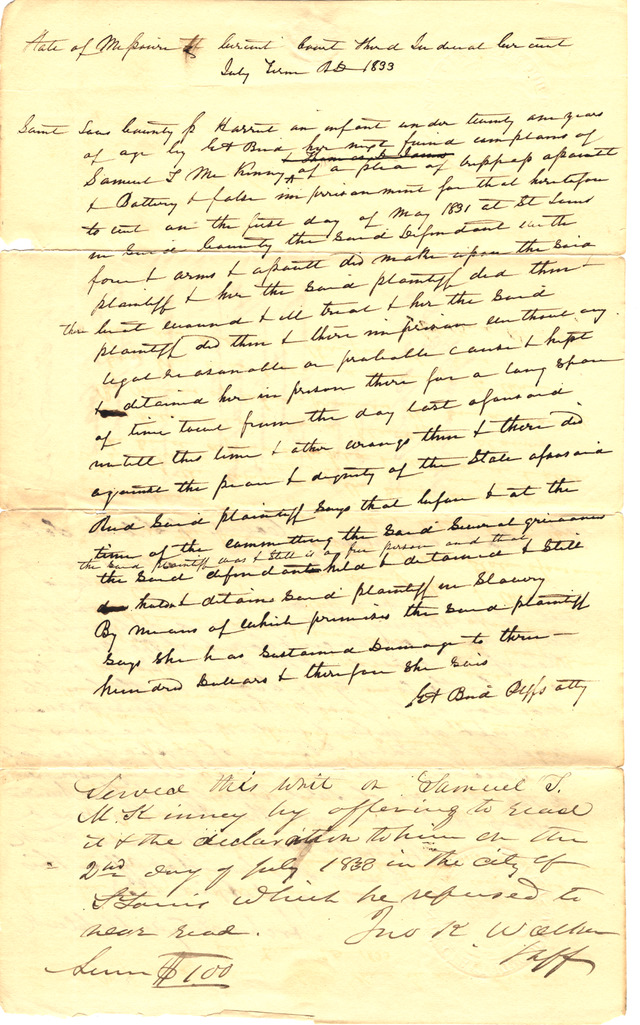 State of Missouri Circuit Court Third Judicial Circuit
July Term AD 1833
Saint Louis County ss Harriet an infant under twenty one years
of age by G A Bird her next friend complains of
Samuel T McKinney & of a plea of trespass assault
& Battery & false imprisonment for that heretofore
to wit on the first day of May 1831 at St Louis
in said County the said Defendant with
force & arms & assault did make upon the said
plaintiff & her the said plaintiff did then &
there beat wound & ill treat & her the said
plaintiff did then & there imprison without any
legal reasonable or probable cause & kept
& detained her in prison there for a long space
of time towit from the day last aforesaid
untill this time & other wrongs then & there did
against the peace & dignity of the State aforesaid
And said plaintiff says that before & at the
time of the committing the said several grievances
the said plaintiff was & still is a free person and that
the said defendant held & detained & still
holds & detains said plaintiff in Slavery
By means of which premises the said plaintiff
says she has sustained Damage to three
hundred Dollars & therefore she sues
G A Bird Plffs atty
Served this writ on Samuel T.
McKinney by offering to read
it & the declaration to him on the
2nd day of July 1833 in the city of
St Louis which he refused to
hear read. Jno K Walker
Shff
$1 00